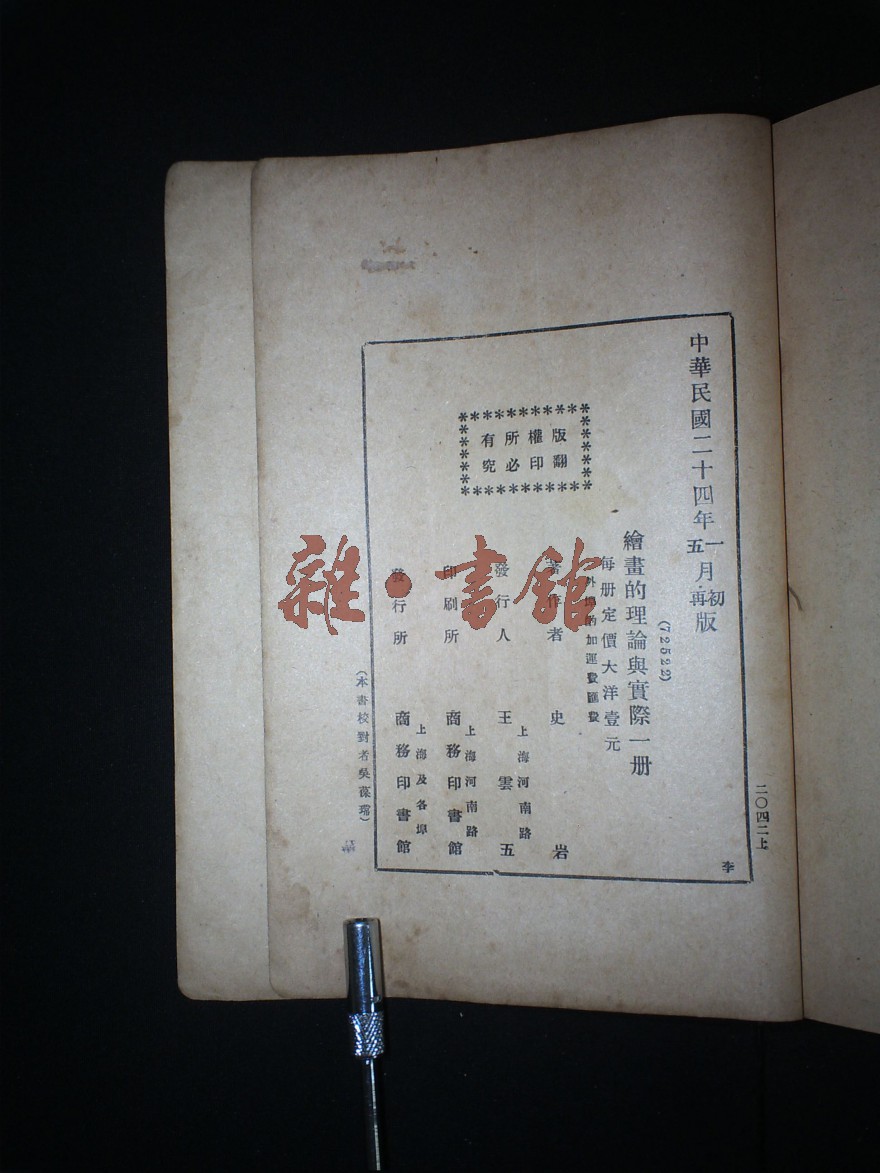 中華民國二十四年一月初版
五月再版
(72522)
繪畫的理論與實際一册
每册定價大洋壹元
外埠酌加運費匯費
版權所有
翻印必究
著作者 史岩
上海河南路
發行人 王雲五
上海河南路
印刷所 商務印書館
上海及各埠
發行所 商務印書館
(本書校對者吳葆瑞)
二〇四二上
李
雜·書館